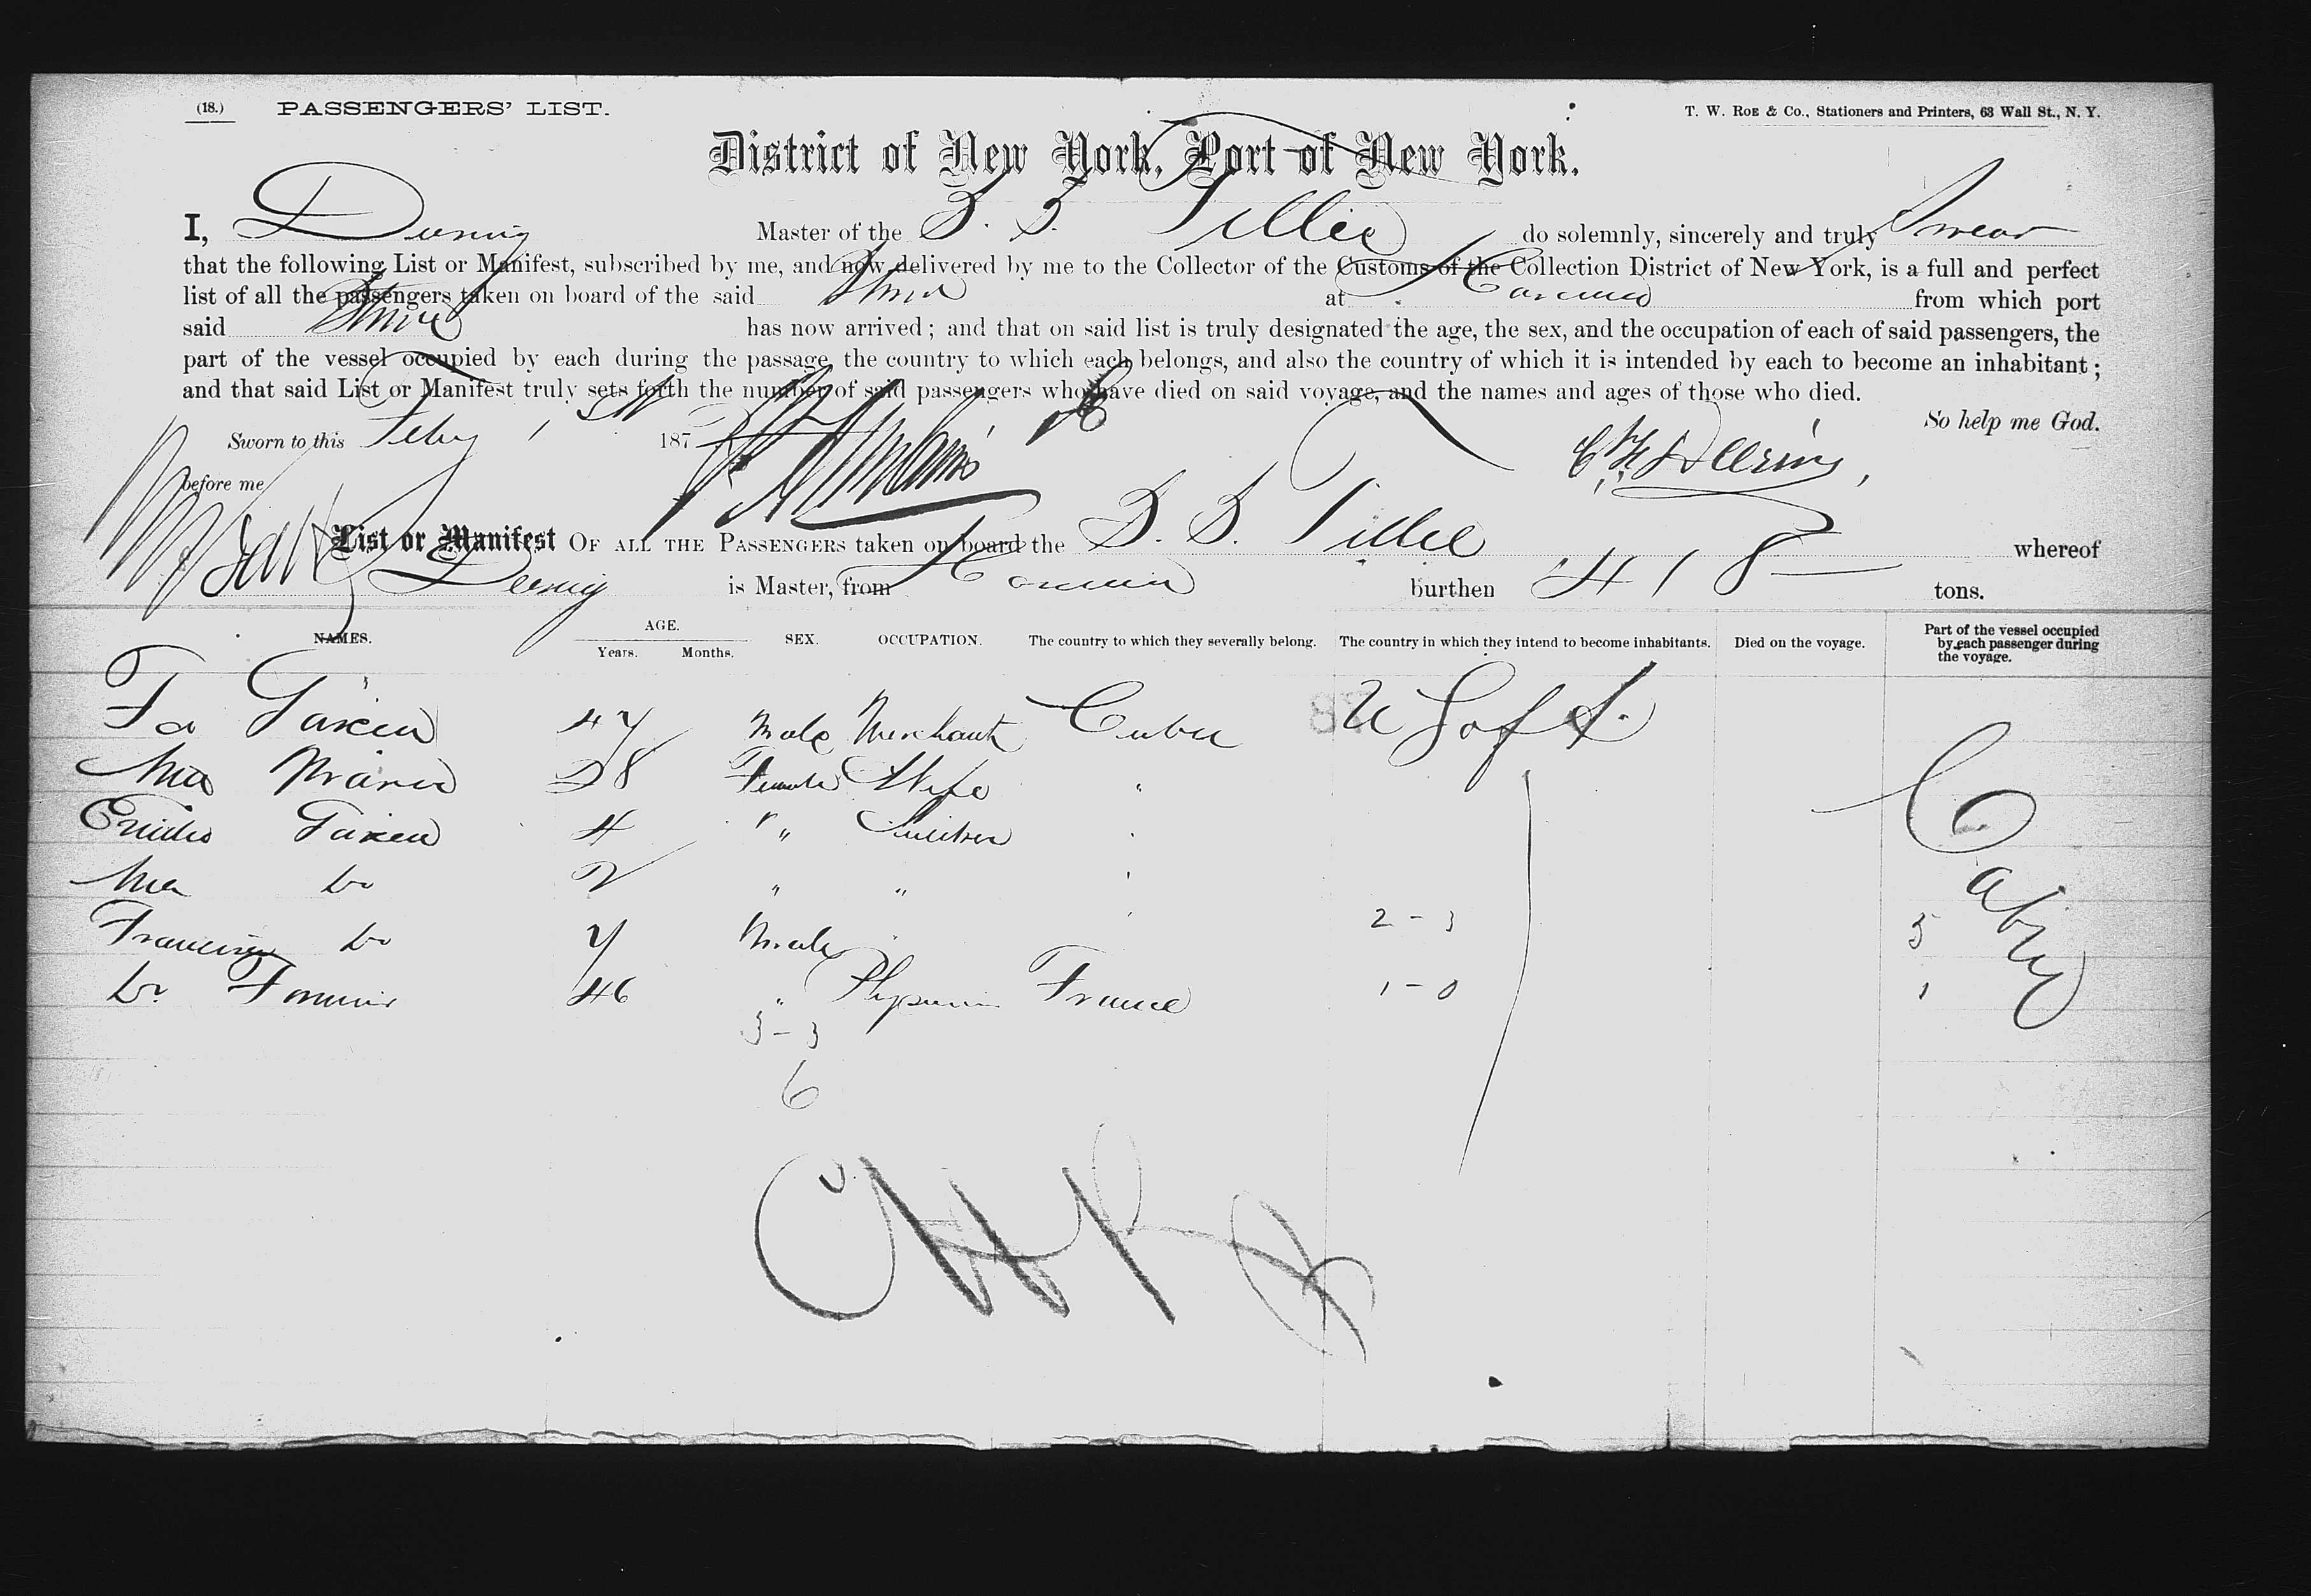 (18.) PASSENGERS' LIST. T. W. ROE & Co., Stationers and Printers, 63 Wall St., N. Y.
District of New York, Port of New York.
I, Deering Master of the S. S. Tillie do solemnly, sincerely and truly Swear
that the following List or Manifest, subscribed by me, and now delivered by me to the Collector of the Customs of the Collection District of New York, is a full and perfect
list of all the passengers taken on board of the said Stmr at Havana from which port
said Stmr has now arrived; and that on said list is truly designated the age, the sex, and the occupation of each of said passengers, the
part of the vessel occupied by each during the passage, the country to which each belongs, and also the country of which it is intended by each to become an inhabitant;
and that said List or Manifest truly sets forth the number of said passengers who have died on said voyage, and the names and ages of those who died.
So help me God.
Sworn to this Feby 1 187
before me
List or Manifest OF ALL THE PASSENGERS taken on board the S. S. Tillie whereof
Deering is Master, from Havana burthen 418 tons.
NAMES. AGE. Years. Months. SEX. OCCUPATION. The country to which they severally belong. The country in which they intend to become inhabitants. Died on the voyage. Part of the vessel occupied by each passenger during the voyage.
Fo Garcia 47 Male Merchant Cuba U S of A.
Ma 28 Female Wife "
Emilio Garcia 4 " Children "
Ma Do 2 " " "
Francisco Do 7 Male " 2-3 5
Dr 46 " Physician France 1-0 1
Cabin
3-3
6